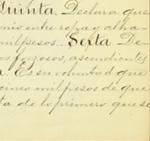 Quinta. Declara que
entre ropa y alha
mil pesos. Sexta. De
gozosos, ascendientes
a. Es su voluntad que
mil pesos de que
ta de lo primero que se